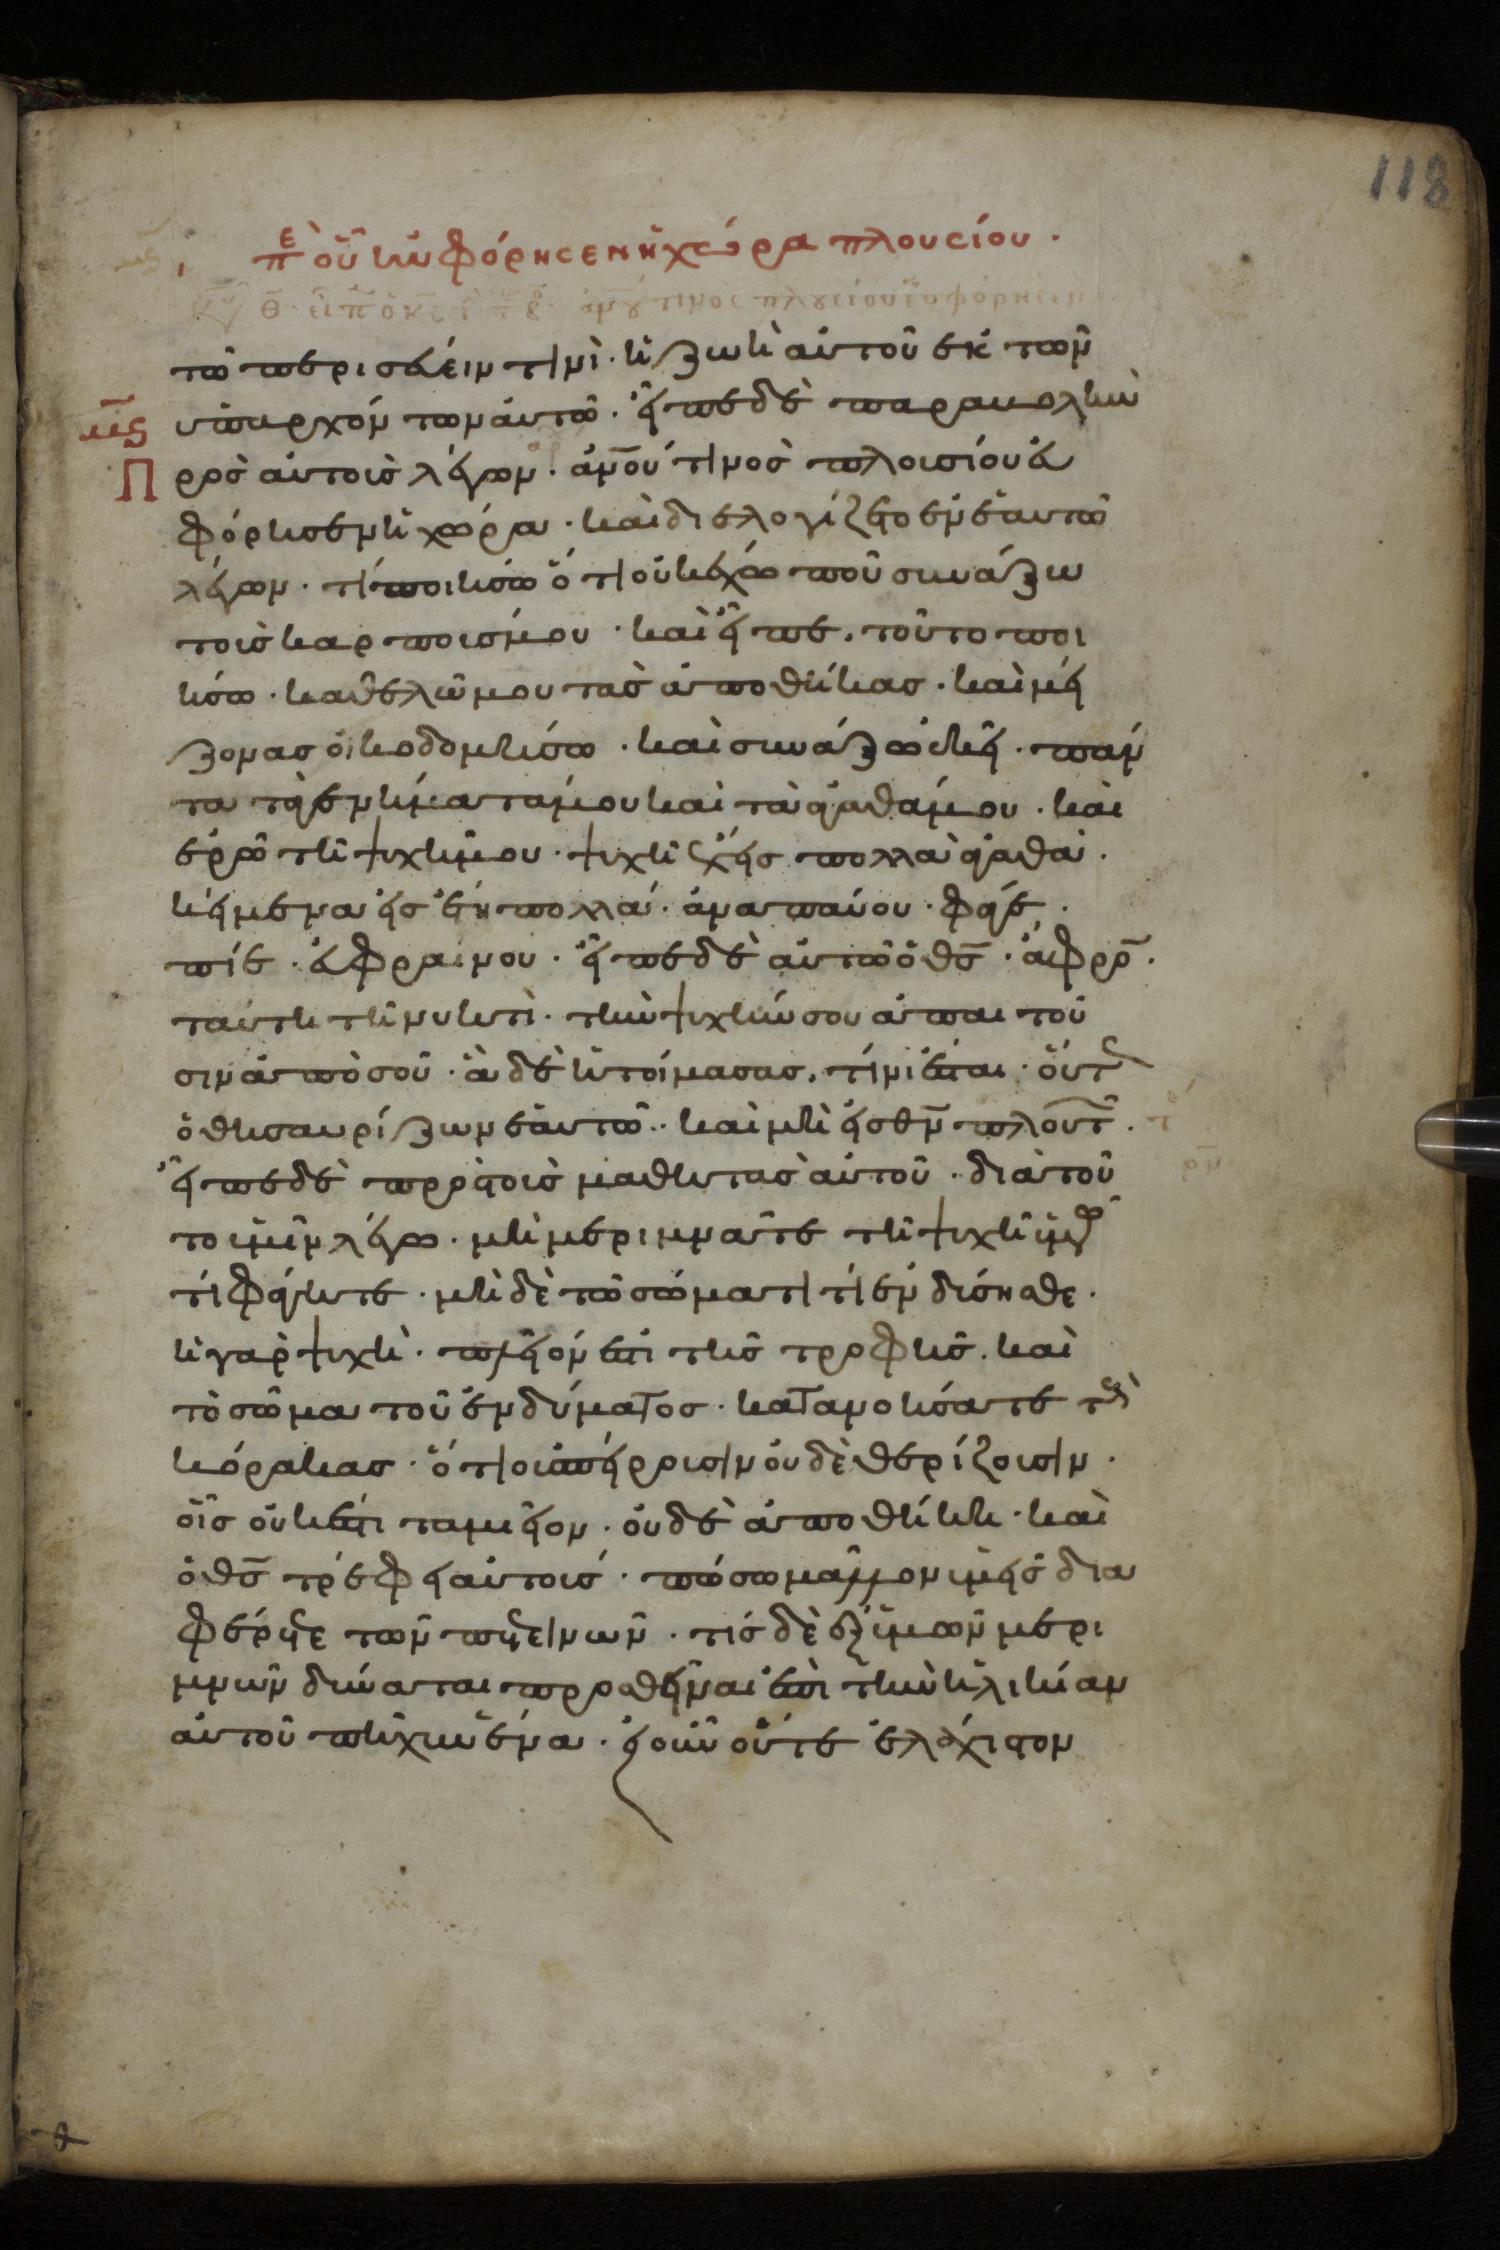 118
πε οὗ ηὐφόρησεν ἡ χώρα πλουσίου.
τῶ περισεύειν τινὶ· ἡ ζωὴ αὐτοῦ ἐκ τῶν
ὑπαρχόντων αὐτῶ· εἶπε δὲ παραβολὴν
Πρὸς αὐτοὺς λέγων· ἀνου τινὸς πλουσίου εὐ
φόρησεν ἡ χώρα· καὶ διελογίζετο ἐν ἑαυτῶ
λέγων· τί ποιήσω ὅτι οὐκ ἔχω ποῦ συνάξω
τοὺς καρποὺς μου· καὶ εἶπε, τοῦτο ποι
ήσω· καθελῶ μου τὰς ἀποθήκας· καὶ μεί
ζονας οἰκοδομήσω· καὶ συνάξω ἐκεῖ· πάν
τα τὰ γενήματά μου καὶ τὰ ἀγαθά μου· καὶ
ἐρῶ τῆ ψυχῆ μου· ψυχὴ ἔχεις πολλὰ ἀγαθὰ·
κείμενα εἰς ἔτη πολλά· ἀναπαύου· φάγε·
πίε· εὐφραίνου· εἶπε δὲ αὐτῶ ὁ θς· ἄφρο·
ταύτη τῆ νυκτὶ· τὴν ψυχήν σου ἀπαιτοῦ
σιν ἀπὸ σοῦ· ἃ δὲ ἡτοίμασας, τίνι ἔσται· οὕτ
ὁ θησαυρίζων ἑαυτῶ· καὶ μὴ εἰς θν πλουτ·
εἶπε δὲ πρὸς τοὺς μαθητὰς αὐτοῦ· διὰ τοῦ
το ὑμῖν λέγω· μὴ μεριμνᾶτε τῆ ψυχῆ ὑμῶ
τί φάγητε· μὴ δὲ τῶ σώματι τί ἐνδύσησθε·
ἡ γὰρ ψυχὴ· πλεῖόν ἐστι τῆς τροφῆς· καὶ
τὸ σῶμα τοῦ ἐνδύματος· κατανοήσατε τοὺ
κόρακας· ὅτι οὐ σπείρουσιν οὐδὲ θερίζουσιν·
οἷς οὐκ ἔστι ταμεῖον· οὐδὲ ἀποθήκη· καὶ
ὁ θς τρέφει αὐτούς· πόσω μᾶλλον ὑμεῖς δια
φέρετε τῶν πετεινῶν· τίς δὲ ἐξ ὑμῶν μερι
μνῶν δύναται προσθεῖναι ἐπὶ τὴν ἡλικίαν
αὐτοῦ πῆχυν ἕνα· εἰ οὖν οὔτε ἐλάχιστον